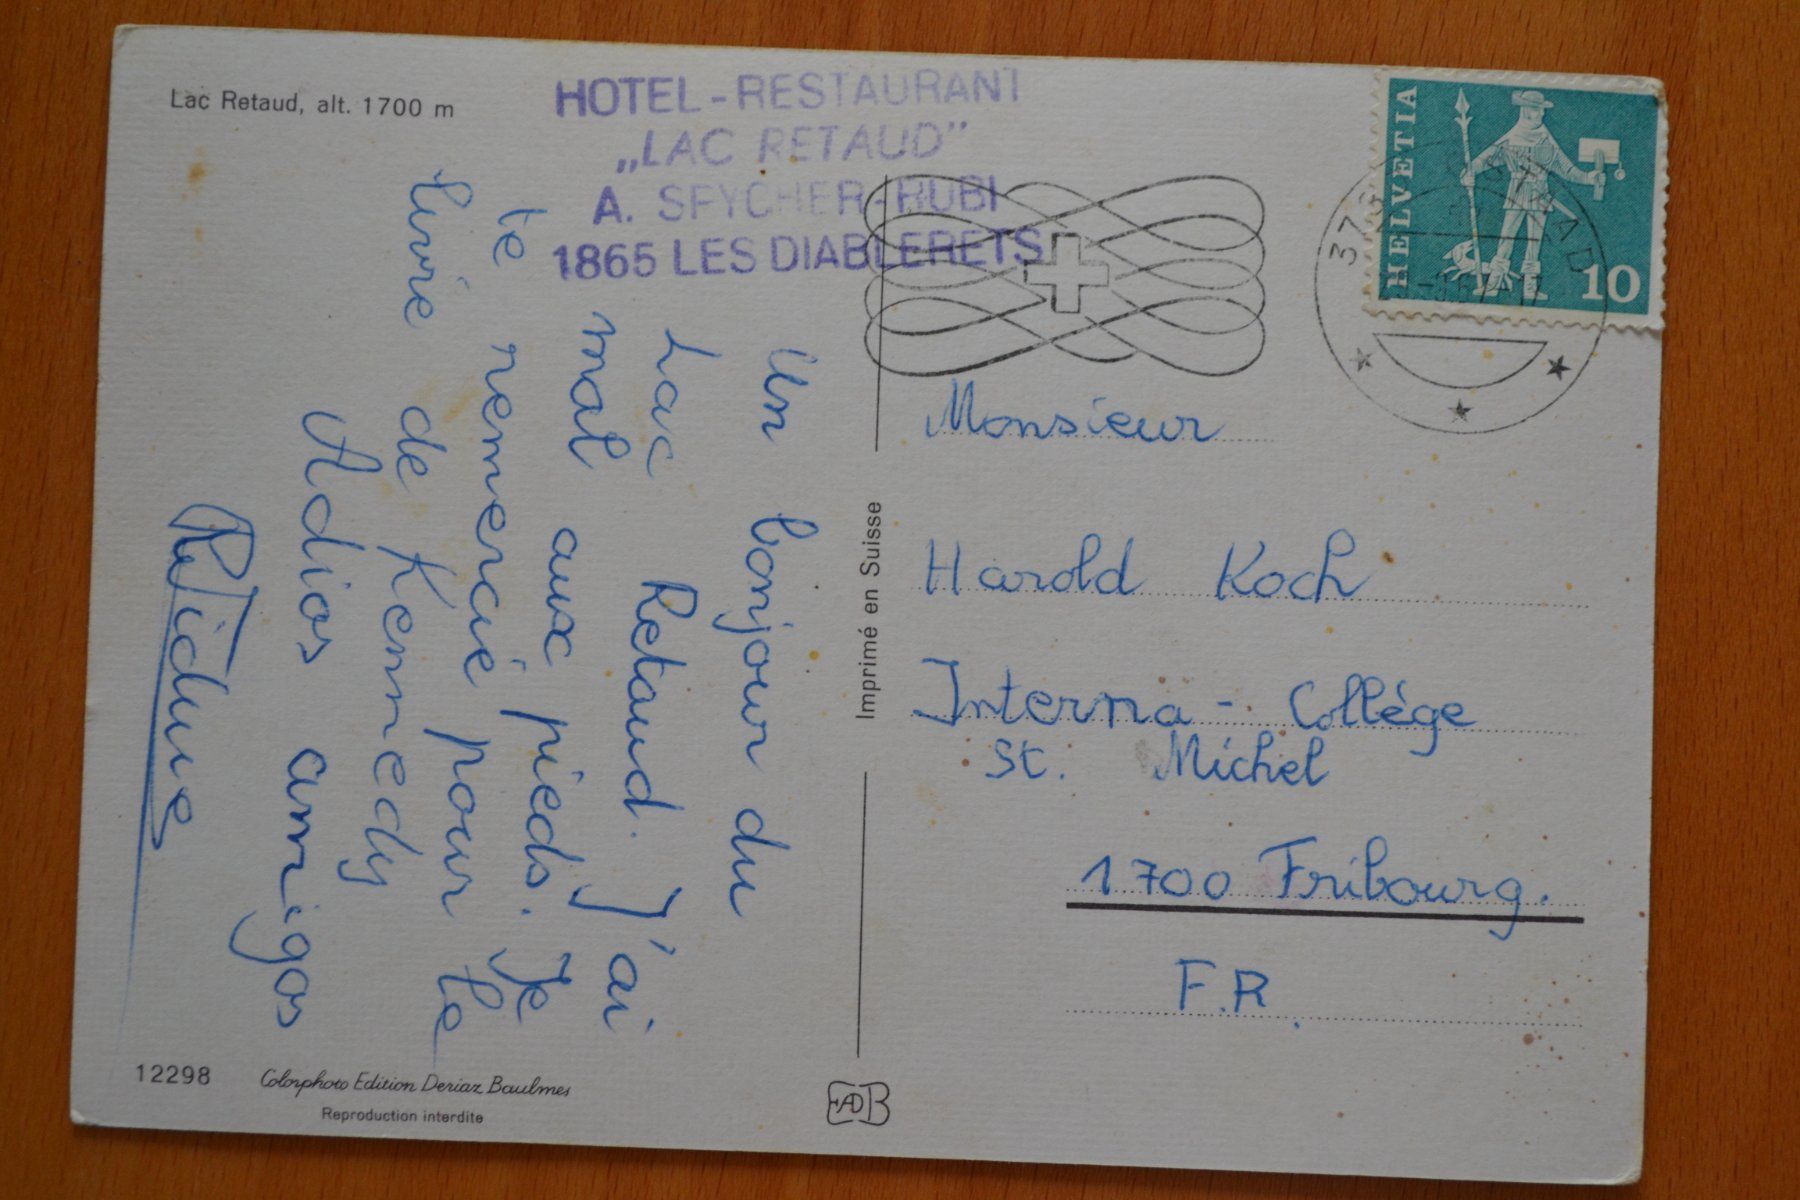 Lac Retaud, alt. 1700 m
HOTEL-RESTAURANT
„LAC RETAUD"
A. SEYCHER-RUBI
1865 LES DIABLERETS
HELVETIA
10
Un bonjour du
Lac Retaud. J'ai
mal aux pieds. Je
te remercie pour le
livre de Kennedy
Adios amigos
Imprimé en Suisse
Monsieur
Harold Koch
Interna - Collége
St. Michel
1700 Fribourg.
F.R.
12298
Colorphoto Edition Deriaz Baulmes
Reproduction interdite